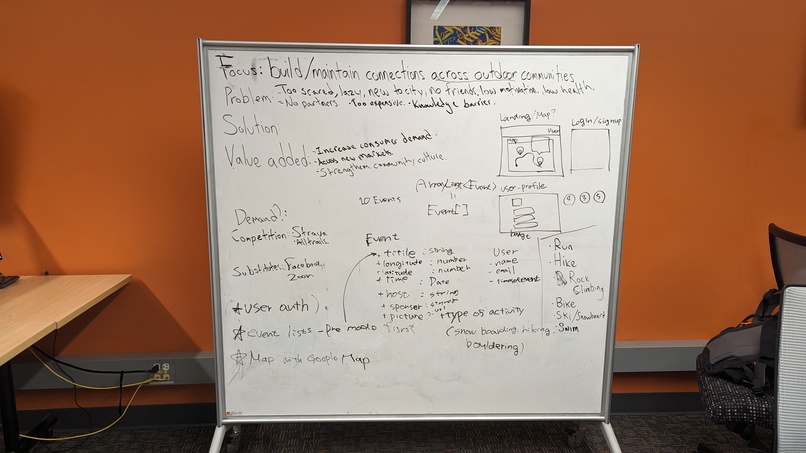 Focus: build/maintain connections across outdoor communities
Problem: Too scared, lazy, new to city, no friends, low motivation, low health.
- No partners - Too expensive - Knowledge barrier.
Solution
Value added: - Increase consumer demand.
- Access new markets
- Strengthen community culture.
Landing "Map?"
Login/signup
User
10 Events
(ArrayList<Event>)
Event[]
user-profile
badge
Demand?:
Competition: Strava
Alltrails
Substitutes: Facebook
Zoom
Event
+ title : string
+ longitude : number
+ latitude : number
+ time : Date
+ host : string
+ sponsor :
+ picture? : url
+ type of activity
(snowboarding, hiking,
bouldering)
User
- name
- email
- Run
- Hike
Rock
Climbing
- Bike
- Ski/Snowboard
- Swim
* user auth)
* Event lists - Pre made first
* Map with Google Map